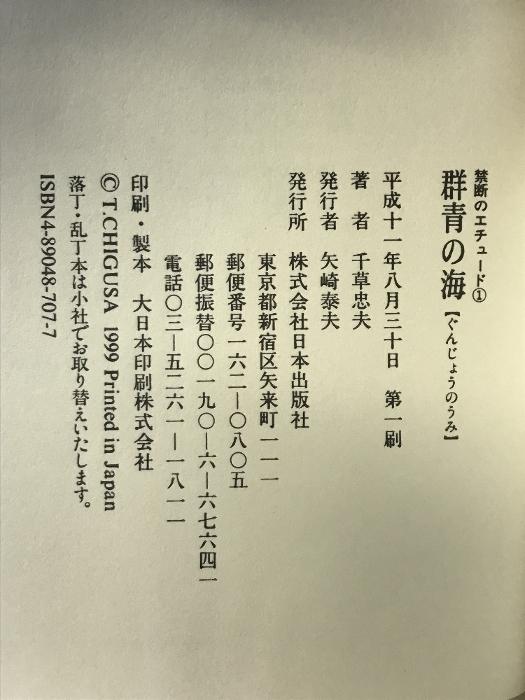 禁断のエチュード①
群青の海【ぐんじょうのうみ】
平成十一年八月三十日 第一刷
著者 千草忠夫
発行者 矢崎泰夫
発行所 株式会社日本出版社
東京都新宿区矢来町一一一
郵便番号一六二―〇八〇五
郵便振替〇〇一九〇―六―六七六四一
電話〇三―五二六一―一八一一
印刷・製本 大日本印刷株式会社
© T.CHIGUSA 1999 Printed in Japan
落丁・乱丁本は小社でお取り替えいたします。
ISBN4-89048-707-7